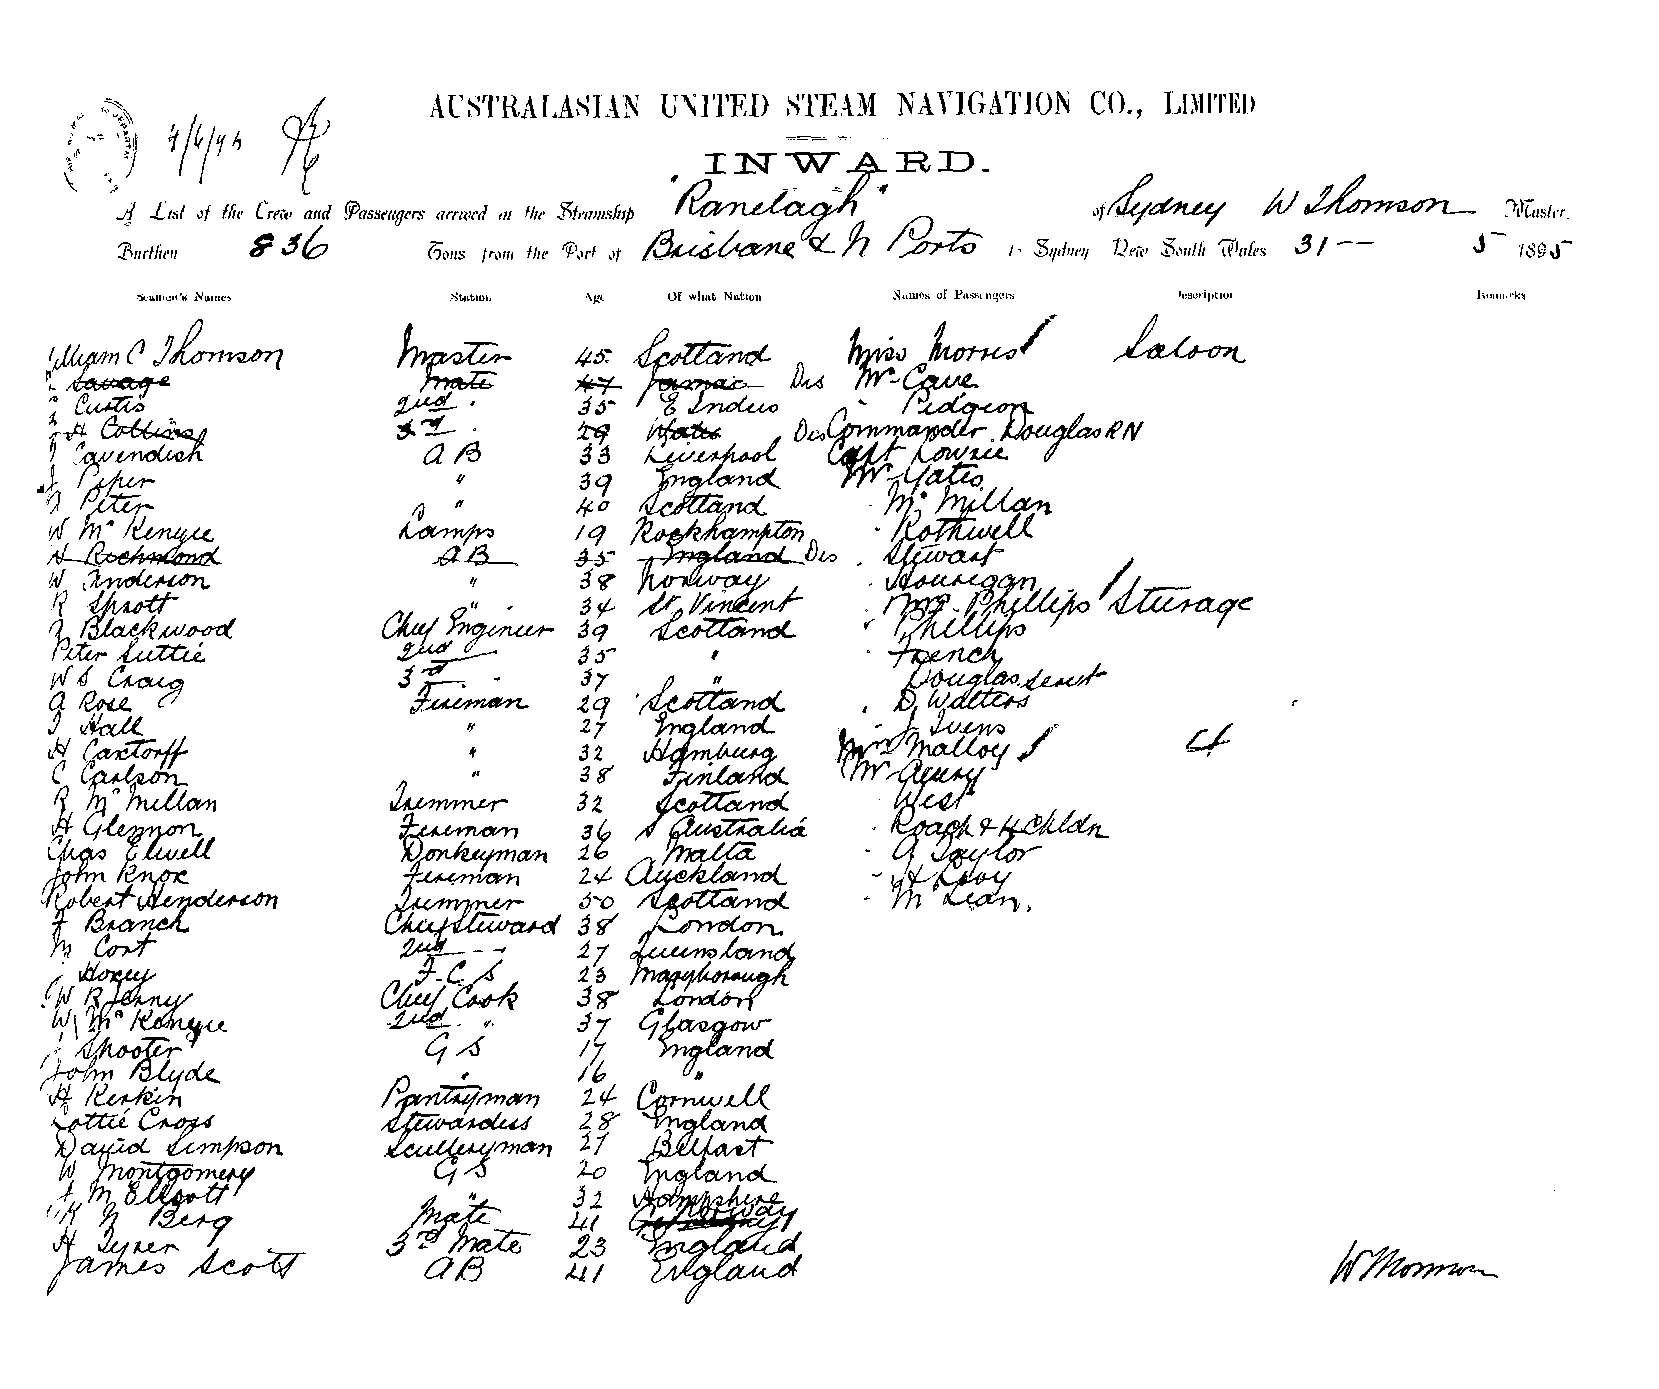 4/6/95
AUSTRALASIAN UNITED STEAM NAVIGATION CO., LIMITED
INWARD.
A List of the Crew and Passengers arrived in the Steamship "Ranelagh" of Sydney W Thomson Master,
Burthen 836 Tons from the Port of Brisbane & N Ports to Sydney New South Wales 31 -- 5 1895
Seamen's Names Station Age Of what Nation Names of Passengers Description Remarks
William C Thomson Master 45 Scotland Miss Morris Saloon
Savage Mate 47 Jamaic Dis Mr Cave
Curtis 2nd 35 E Indus Pidgeon
H Collins 3rd 29 Wales Dis Commander Douglas RN
Cavendish AB 33 Liverpool Capt Lowrie
Piper " 39 England Mr Yates
Peter " 40 Scotland McMillan
W McKenzie Lamps 19 Rockhampton Rothwell
H Richmond AB 35 England Dis Stewart
W Anderson " 38 Norway Hourigan
R Sprott " 34 St Vincent Mrs Phillips Steerage
Blackwood Chief Engineer 39 Scotland Phillips
Peter Suttie 2nd 35 " French
W S Craig 3rd 37 " Douglas Servt
A Rose Fireman 29 Scotland D. Walters
Hall " 27 England J Ivens
H Cartorff " 32 Hamburg Malloy
C Carlson " 38 Finland Mr
R McMillan Trimmer 32 Scotland West
H Glennon Fireman 36 S Australia Roach & 4 Chldn
Chas Elwell Donkeyman 26 Malta A Taylor
John Knox Fireman 24 Auckland H Levy
Robert Henderson Trimmer 50 Scotland McLean.
F Branch Chief Steward 38 London
M Cort 2nd 27 Queensland
Hoxey F.C.S 23 Maryborough
W B Jenny Chief Cook 38 London
W McKenzie 2nd " 37 Glasgow
Shooter G S 17 England
John Blyde " 16 "
H Kerkin Pantryman 24 Cornwell
Lottie Cross Stewardess 28 England
David Simpson Sculleryman 27 Belfast
W Montgomery G S 20 England
M Ellcott " 32 Hampshire
N Berg Mate 41 Norway
H Tyrer 3rd Mate 23 England
James Scott AB 41 England
W Thomson